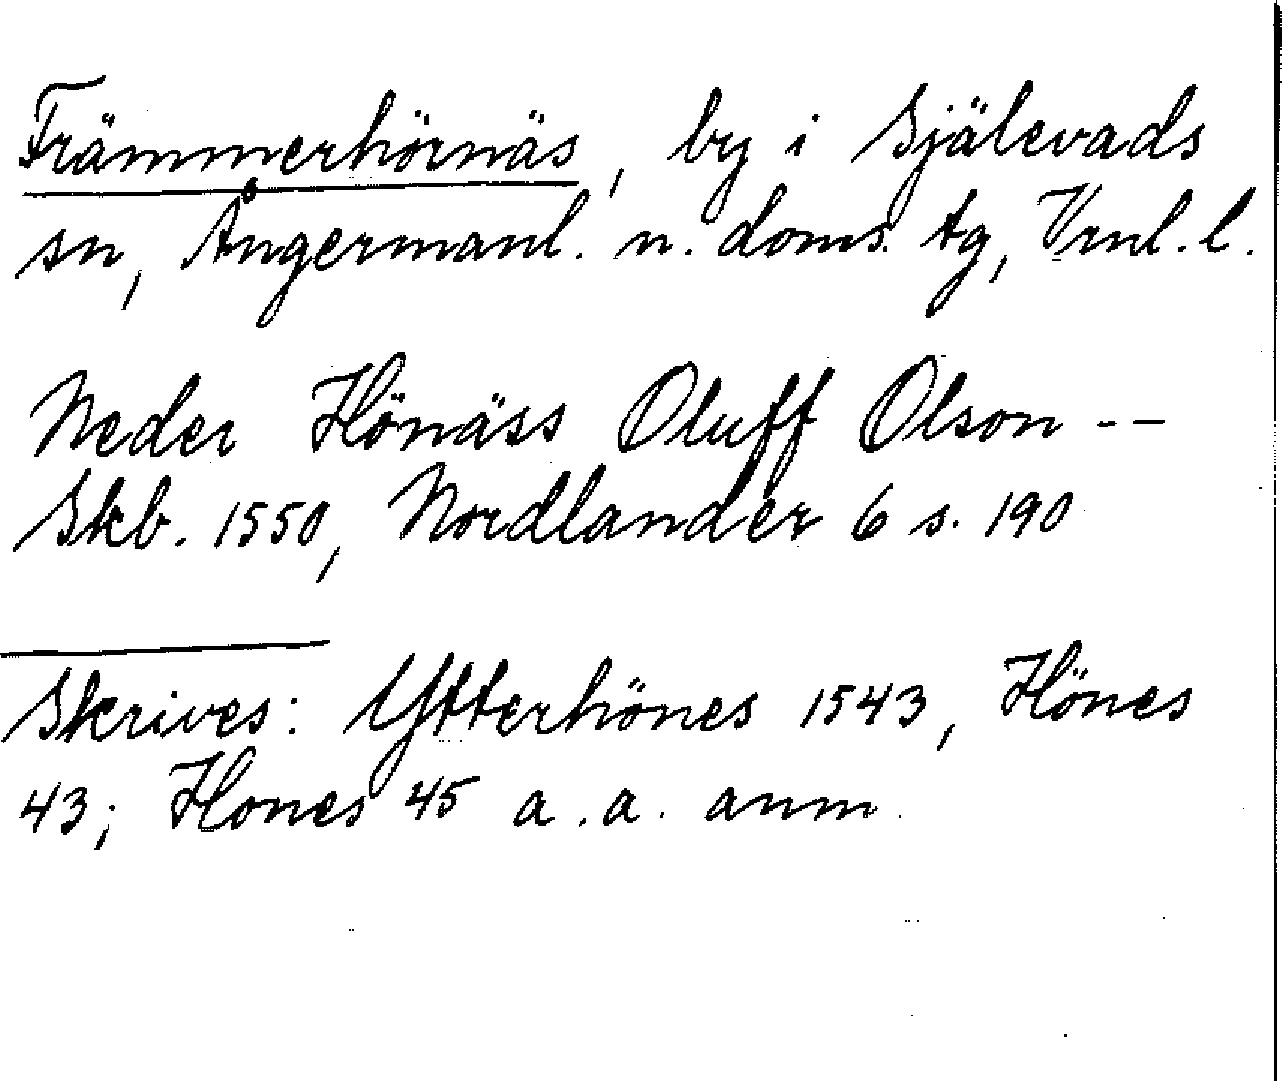 Främmerhörnäs, by i Själevads
sn, Ångermanl. n. doms. tg, Vrnl. l.
Neder Hönäss Oluff Olson --
Skb. 1550, Nordlander 6 s. 190
Skrives: Ytterhönes 1543, Hönes
43; Hones 45 a. a. anm.